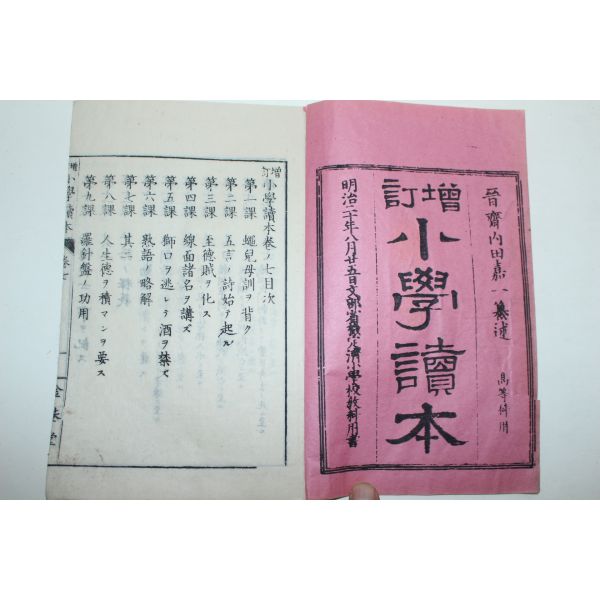 晉齋内田嘉一纂述
高等科用
増訂
小學讀本
明治二十年八月廿五日文部省檢定濟小學校教科用書
増訂小學讀本卷ノ七目次
第一課 蠅兒母訓ヲ背ク
第二課 五言ノ詩始テ起ル
第三課 至德賊ヲ化ス
第四課 線面諸名ヲ講ズ
第五課 獅口ヲ逃レテ酒ヲ禁ズ
第六課 獸語ノ略解
第七課 其二
第八課 人生德ヲ積マンヲ要ス
第九課 羅針盤ノ功用
増訂小學讀本 卷七